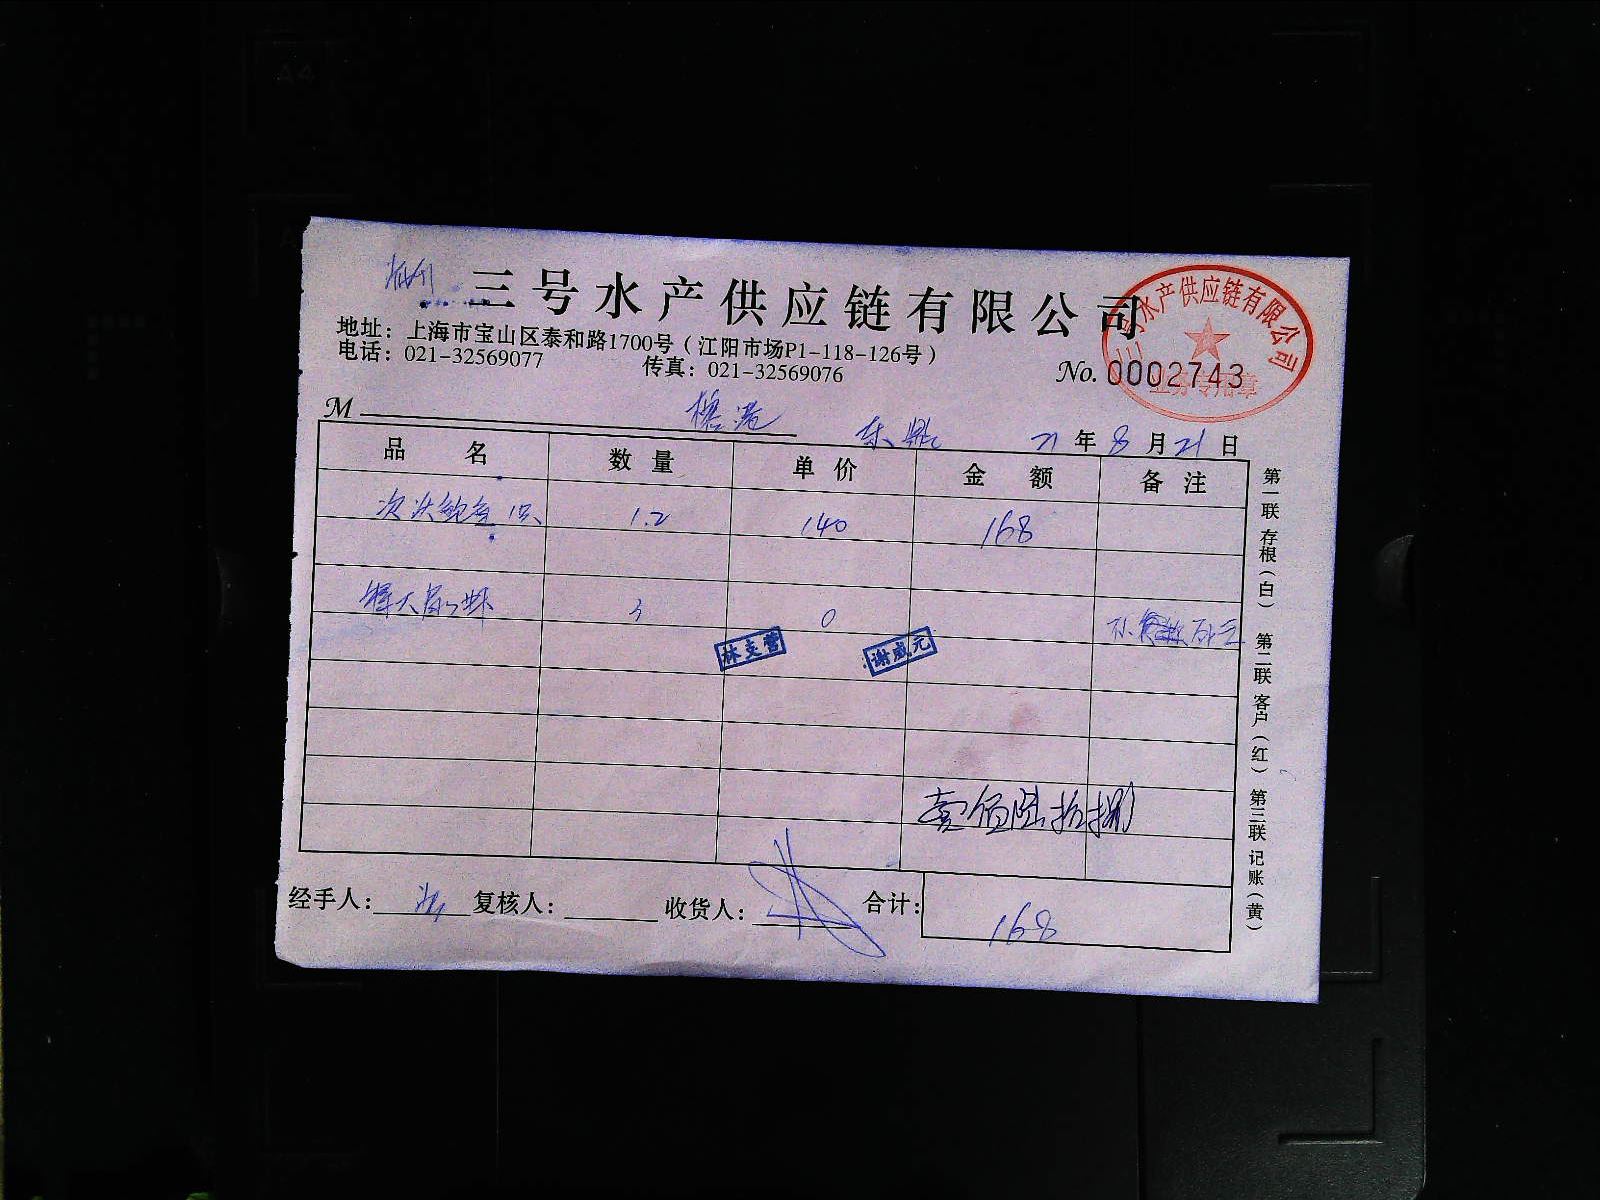 三号水产供应链有限公司
地址：上海市宝山区泰和路1700号（江阳市场P1-118-126号）
电话：021-32569077 传真：021-32569076
No. 0002743
三号水产供应链有限公司
业务专用章
M
21年8月21日
品名 数量 单价 金额 备注
鲍鱼 1.2 140 168
特大 虾 3 0
林支营 谢威元
壹佰陆拾捌
经手人： 复核人： 收货人： 合计： 168
第一联 存根（白） 第二联 客户（红） 第三联 记账（黄）